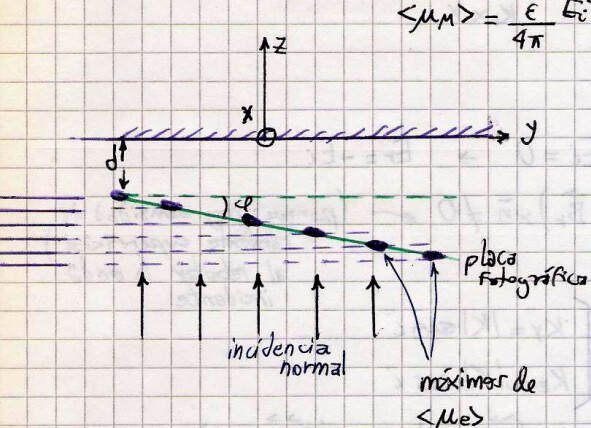 <μ_M> = ε/4π E_i
z
x
y
d
φ
placa
fotográfica
incidencia
normal
máximos de
<μe>